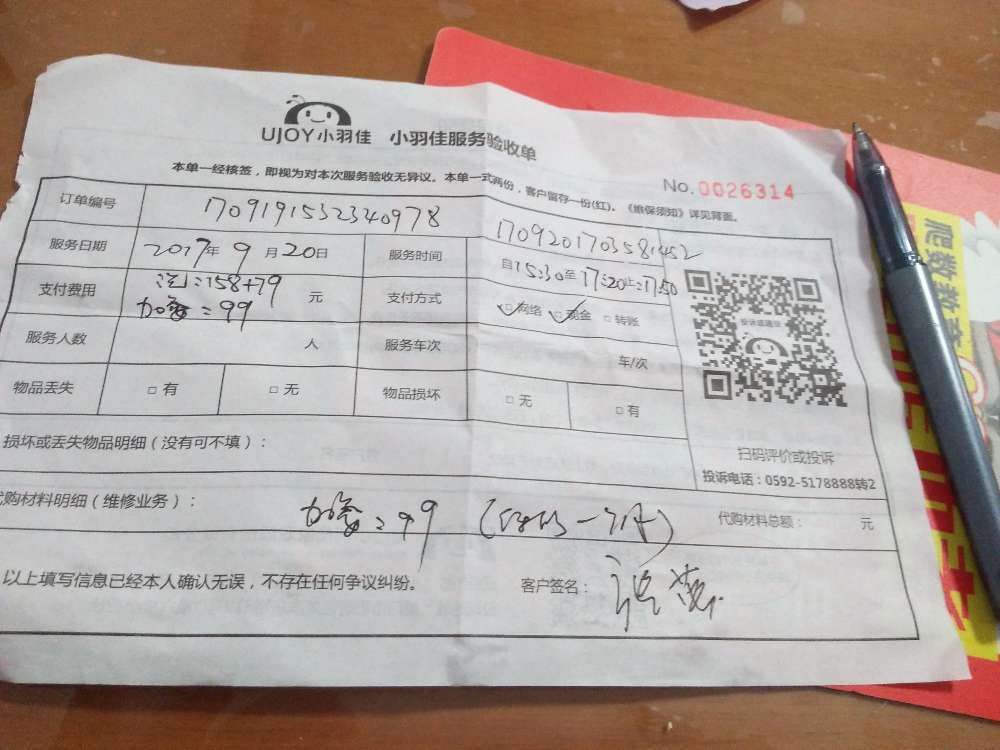 UJOY小羽佳 小羽佳服务验收单
本单一经核签，即视为对本次服务验收无异议。本单一式两份，客户留存一份(红)。《维保须知》详见背面。
No.0026314
订单编号 170919153234​0978 1709201703581452
服务日期 2017年9月20日 服务时间 自15:30至17:20止:17:50
支付费用 :158+79 元 支付方式 网络 现金 转账
=99
服务人数 人 服务车次 车/次
物品丢失 □有 □无 物品损坏 □无 □有
扫码评价或投诉
投诉电话：0592-5178888转2
损坏或丢失物品明细（没有可不填）：
购材料明细（维修业务）： =99 代购材料总额： 元
以上填写信息已经本人确认无误，不存在任何争议纠纷。 客户签名：